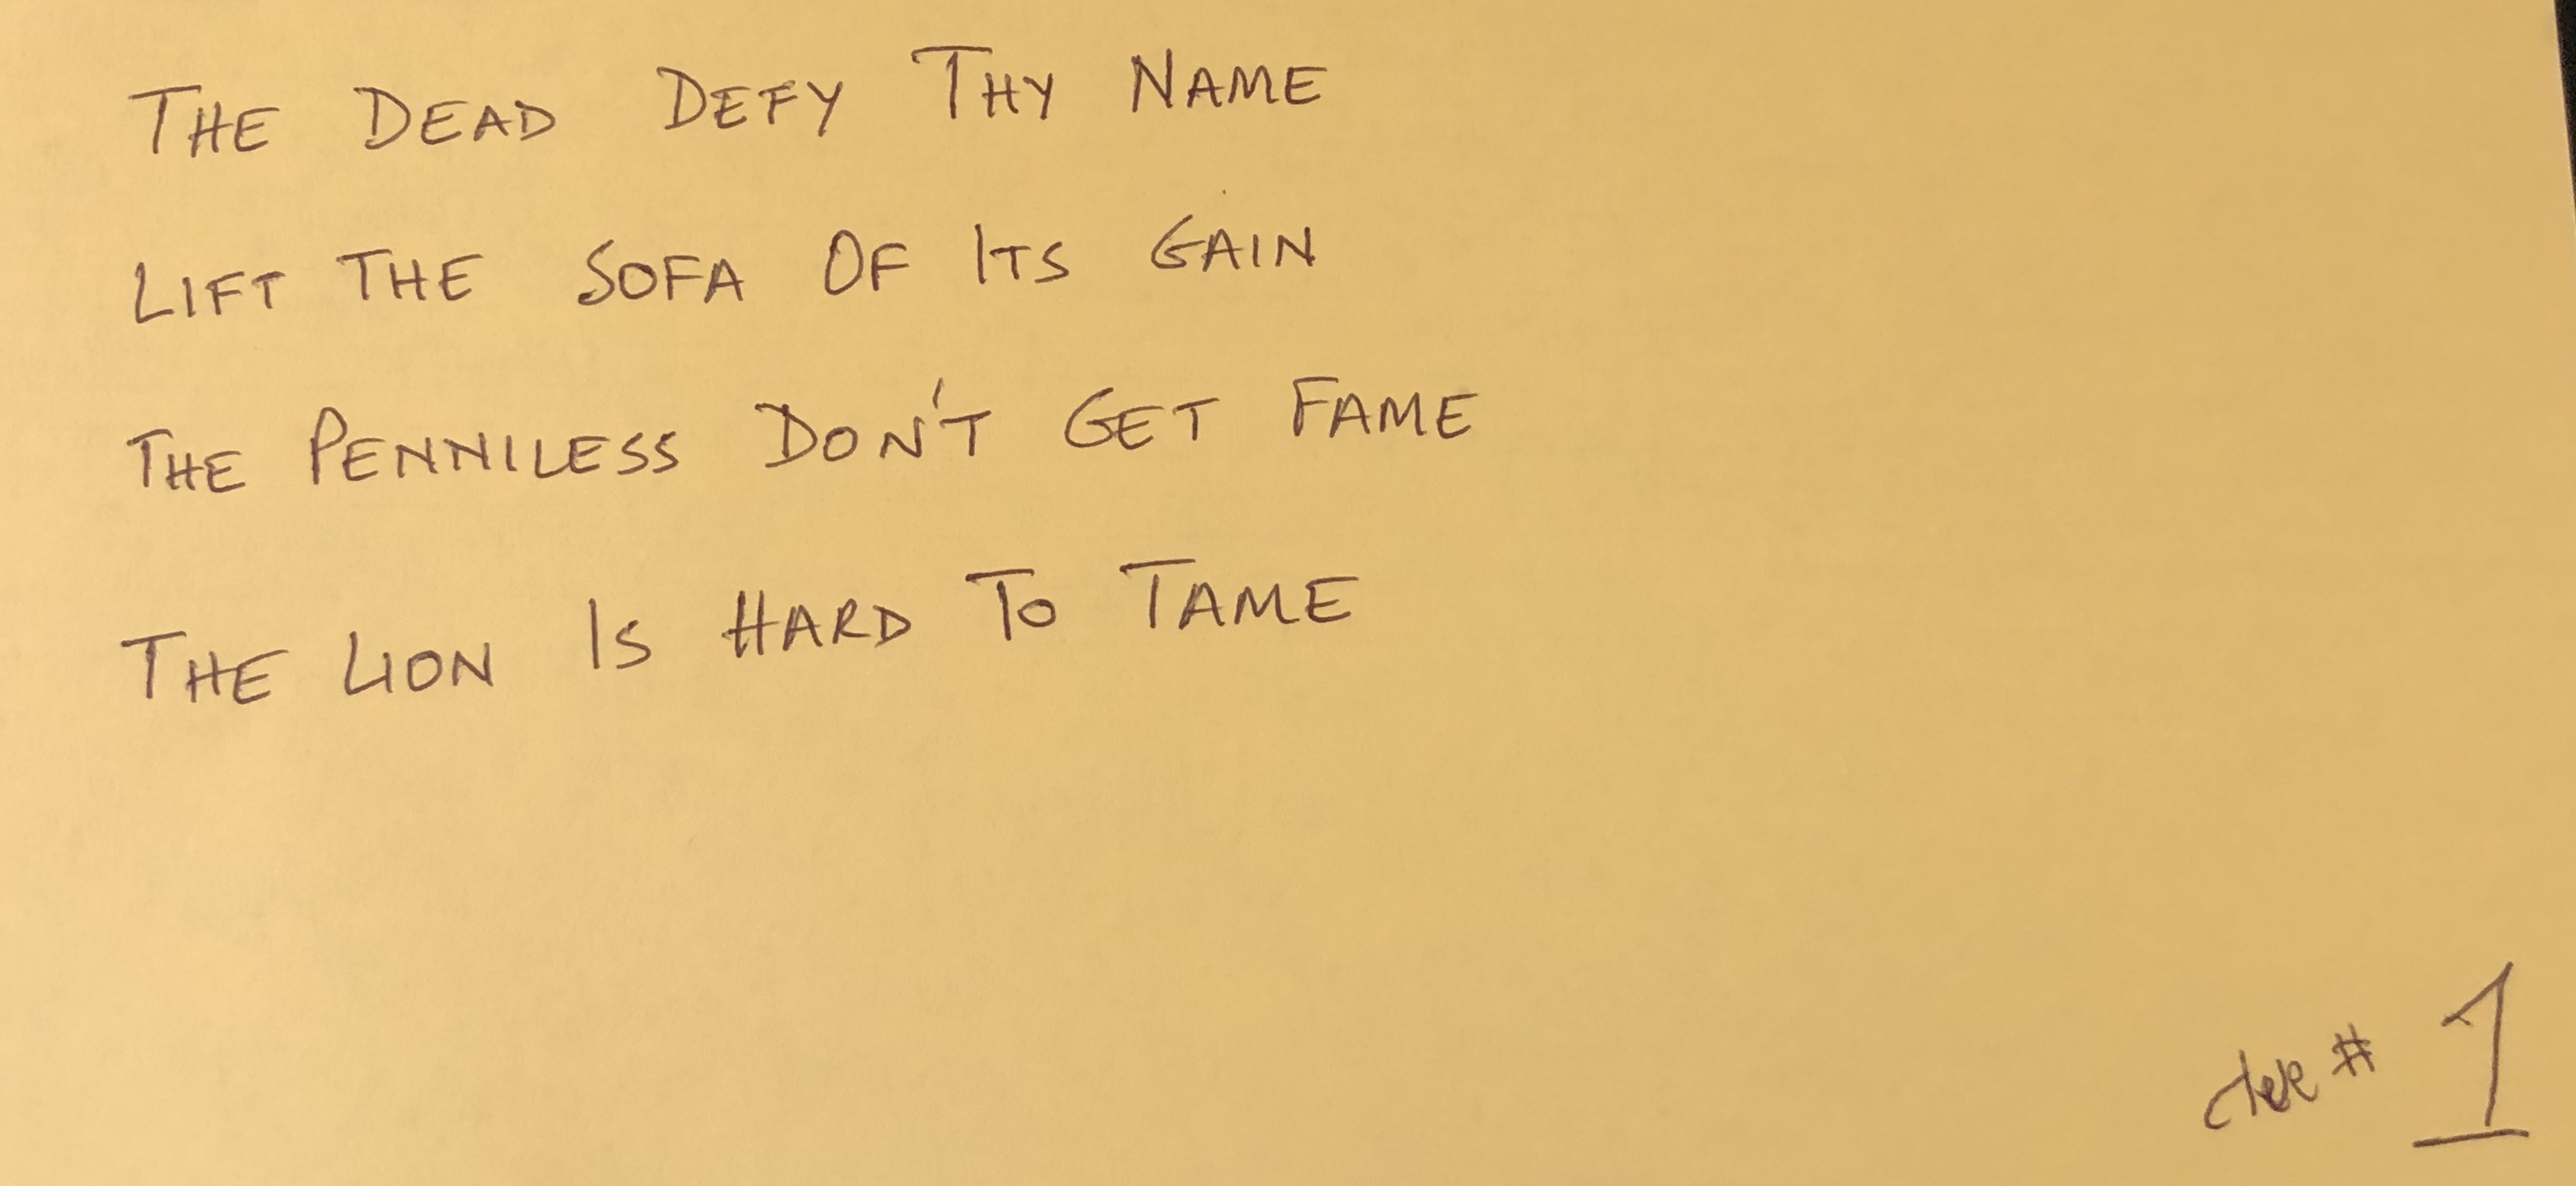 THE DEAD DEFY THY NAME
LIFT THE SOFA OF ITS GAIN
THE PENNILESS DON'T GET FAME
THE LION IS HARD TO TAME
clue # 1